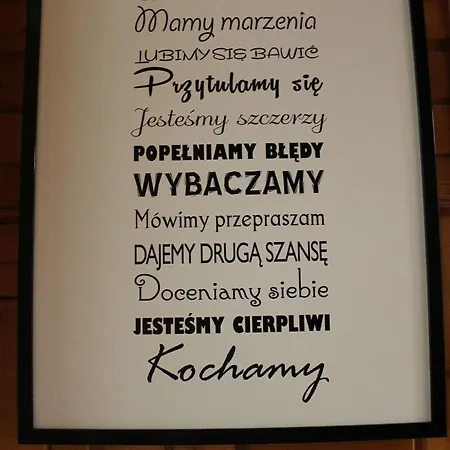 Mamy marzenia
LUBIMY SIĘ BAWIĆ
Przytulamy się
Jesteśmy szczerzy
POPEŁNIAMY BŁĘDY
WYBACZAMY
Mówimy przepraszam
DAJEMY DRUGĄ SZANSĘ
Doceniamy siebie
JESTEŚMY CIERPLIWI
Kochamy